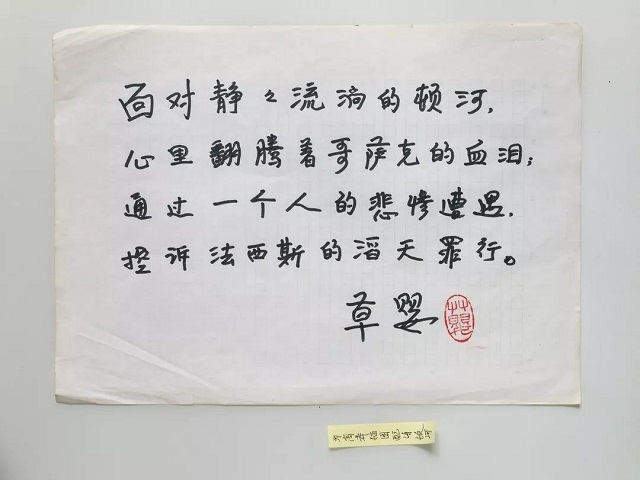 面对静々流淌的顿河,
心里翻腾着哥萨克的血泪;
通过一个人的悲惨遭遇,
控诉法西斯的滔天罪行。
草婴